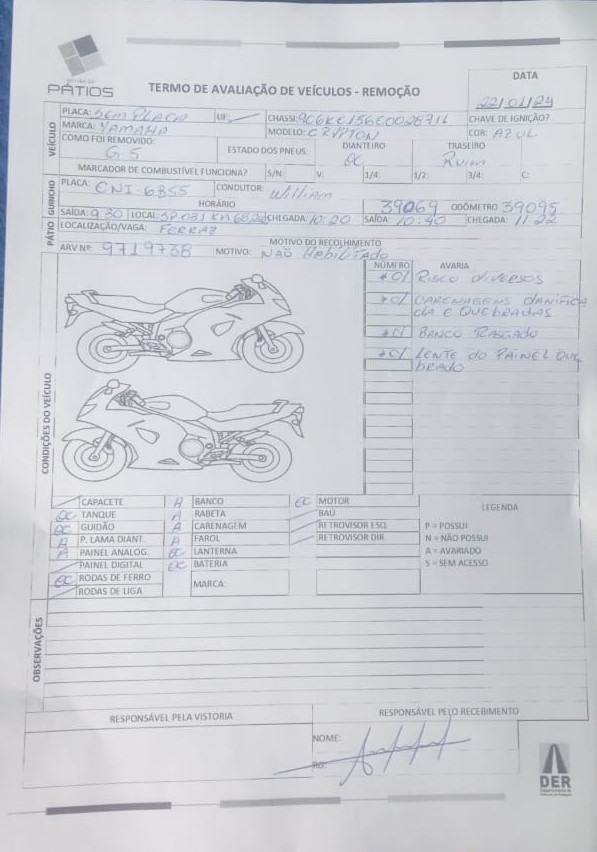 PÁTIOS
TERMO DE AVALIAÇÃO DE VEÍCULOS - REMOÇÃO
DATA
22/01/24
VEÍCULO
PLACA: SEM PLACA UF: CHASSI: CHAVE DE IGNIÇÃO?
MARCA: YAMAHA MODELO: CRYPTON COR: AZUL
COMO FOI REMOVIDO: ESTADO DOS PNEUS: DIANTEIRO TRASEIRO
G5 OC Ruim
MARCADOR DE COMBUSTÍVEL FUNCIONA? S/N: V: 1/4: 1/2: 3/4: C:
GUINCHO
PLACA: CNI-6855 CONDUTOR: William
HORÁRIO 39069 ODÔMETRO 39095
SAÍDA: 9:30 LOCAL: SP 031 KM CHEGADA: 10:20 SAÍDA 10:40 CHEGADA: 11:22
PÁTIO
LOCALIZAÇÃO/VAGA: FERRAZ
MOTIVO DO RECOLHIMENTO
ARV Nº: 9719738 MOTIVO: NÃO HABILITADO
CONDIÇÕES DO VEÍCULO
NÚMERO AVARIA
+01 RISCO diVERSOS
+01 CARENAGENS DANIFICA
dA E QUEBRADAS
+01 BANCO RASGADO
+01 LENTE do PAINEL QUE
bRADO
CAPACETE A BANCO OC MOTOR LEGENDA
OC TANQUE A RABETA BAÚ
OC GUIDÃO A CARENAGEM RETROVISOR ESQ. P = POSSUI
A P. LAMA DIANT. A FAROL RETROVISOR DIR. N = NÃO POSSUI
A PAINEL ANALOG. OC LANTERNA A = AVARIADO
PAINEL DIGITAL OC BATERIA S = SEM ACESSO
OC RODAS DE FERRO MARCA:
RODAS DE LIGA
OBSERVAÇÕES
RESPONSÁVEL PELA VISTORIA RESPONSÁVEL PELO RECEBIMENTO
NOME:
RG:
DER